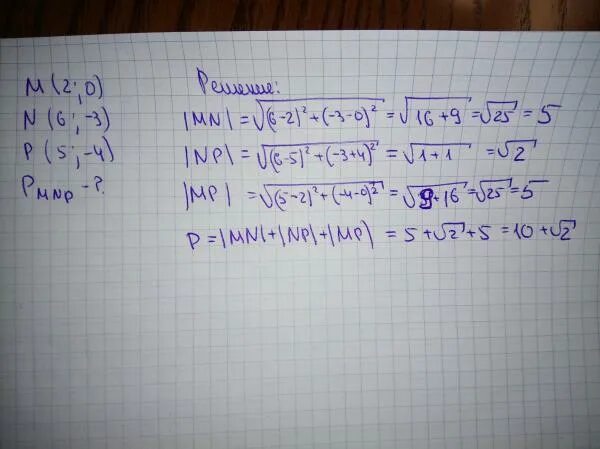 M (2; 0)
N (6; -3)
P (5; -4)
P_MNP - ?
Решение:
|MN| = √((6-2)² + (-3-0)²) = √(16+9) = √25 = 5
|NP| = √((6-5)² + (-3+4)²) = √(1+1) = √2
|MP| = √((5-2)² + (-4-0)²) = √(9+16) = √25 = 5
P = |MN| + |NP| + |MP| = 5 + √2 + 5 = 10 + √2